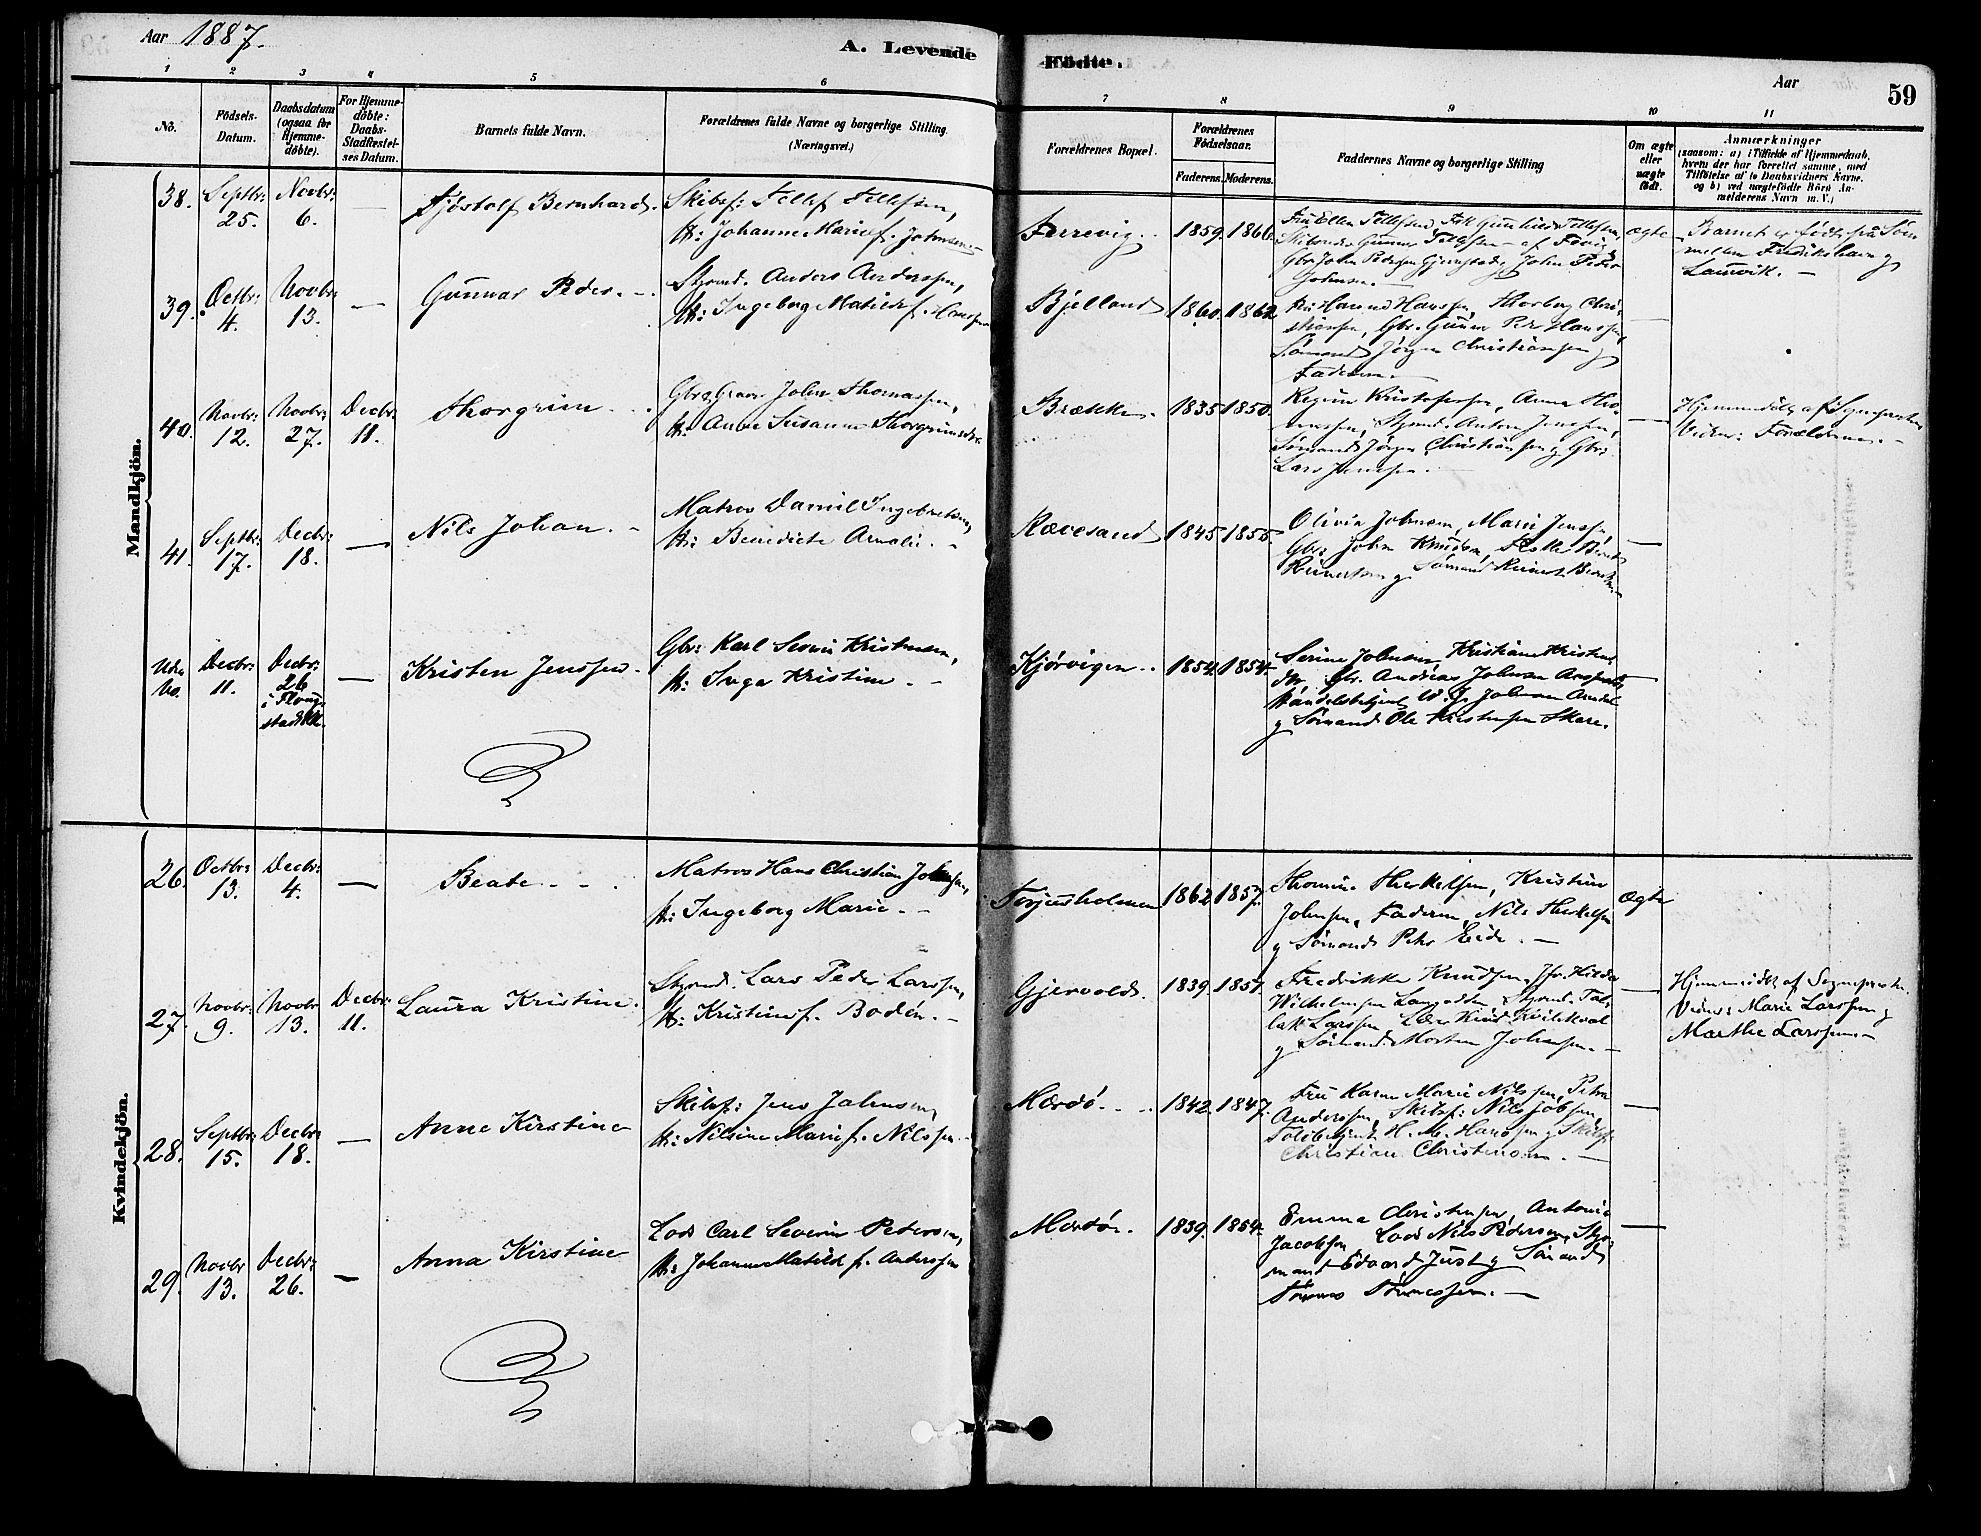 Aar 1887.
A. Levende Födte.
Aar
59
1 2 3 4 5 6 7 8 9 10 11
No.
Födsels-Datum.
Daabsdatum (ogsaa for Hjemmedöbte).
For Hjemmedöbte: Daabs-Stadfæstelses Datum.
Barnets fulde Navn.
Forældrenes fulde Navne og borgerlige Stilling. (Næringsvei.)
Forældrenes Bopæl.
Forældrenes Födselsaar.
Faderens. Moderens.
Faddernes Navne og borgerlige Stilling
Om ægte eller uægte födt.
Anmærkninger
(saasom: a) i Tilfælde af Hjemmedaab, hvem der har forrettet samme, med Tilföielse af to Daabsvidners Navne, og b) ved uægtefödte Börn Anmelderens Navn m. V.)
Mandkjön.
38. Septbr: 25. Novbr: 6. —
Bernhard.
Skibsf: Tellef Tellefsen,
H: Johanne Marie f. Johnsen
1859. 1866.
Gunhild Tellefsen,
John Peder
Johnsen.
ægte
Barnet er födt paa Søen
mellem Fredrikshavn og
Laurvik. —
39. Octbr: 4. Novbr: 13. —
Gunnar Peder. —
Styrmd. Anders Anderssen,
H: Ingeborg Matilde f. Hanssen
Bjelland 1860. 1862.
Hanssen, Thorborg Chri-
stianssen, Gbr. Gunnar Peder Hanssen,
Sømand Jørgen Christianssen og
Faderen. —
40. Novbr: 12. Novbr: 27. Decbr: 11.
Thorgrim.
John Thomassen,
H: Anne Susanne Thorgrimsdtr
Brække. 1835 1850.
Anna Tho-
massen, Styrmd. Anton Jenssen,
Sømand Jørgen Christianssen og Gbr:
Lars Jenssen.
Hjemmedöbt af Sognepresten
Vidner: Forældrene. —
41. Septbr: 17. Decbr: 18. —
Nils Johan. —
Matros Daniel Ingebretsen,
H: Benedicte Amalie. —
Rævesand 1845 1855.
Olivia Johnsen, Marie Jenssen,
Gbr: John Knudsen,
og Sømand
Uden No. Decbr: 11. Decbr: 26 i
Kristen Jenssen.
Gbr: Karl Severin Kristensen,
H: Inga Kristine. —
Kjørvigen. 1854. 1854.
Serine Johnsen, Kristiane Kristens-
dtr, Gbr. Andreas Johnsen
Handelsbetjent W. J. Johnsen Arendal
og Sømand Ole Kristensen Skare.
Kvindekjön.
26. Octbr: 13. Decbr: 4. —
Beate.
Matros Hans Christian Johnsen,
H: Ingeborg Marie. —
Torjusholmen 1862 1857.
Thomine Therkelsen, Kristine
Johnsen, Faderen, Nils Therkelsen
og Sømand Peter Eide. —
Ægte
27. Novbr: 9. Novbr: 13. Decbr: 11.
Laura Kristine.
Styrmd. Lars Peder Larssen,
H: Kristine f. Bodén. —
Gjervolds. 1839. 1857.
Fredrikke Knudsen, Jfr. Hilda
Larssen,
og Sømand Morten Johnsen. —
Hjemmedöbt af Sognepresten.
Vidner: Marie Larssen og
Marthe Larssen. —
28. Septbr: 15. Decbr: 18. —
Anne Kirstine
Skibsf: Jens Johnsen,
H: Nilsine Marie f. Nilssen.
Mærdö. 1842. 1847.
Fru Karen Marie Nilssen, Petra
Anderssen, Skibsf: Nils Jobsen,
Toldbetjent H. M. Hanssen og Skibsf.
Christian Christensen. —
29. Novbr 13. Decbr: 26. —
Anna Kirstine
Lods Carl Severin Petersen,
H: Johanne Matilde f. Anderssen
Mærdö. 1839. 1854.
Emma Christensen, Antonie
Jacobsen, Lods Nils Pedersen, Styr-
mand Edvard Just og Sømand
Tönnes Tönnessen. —